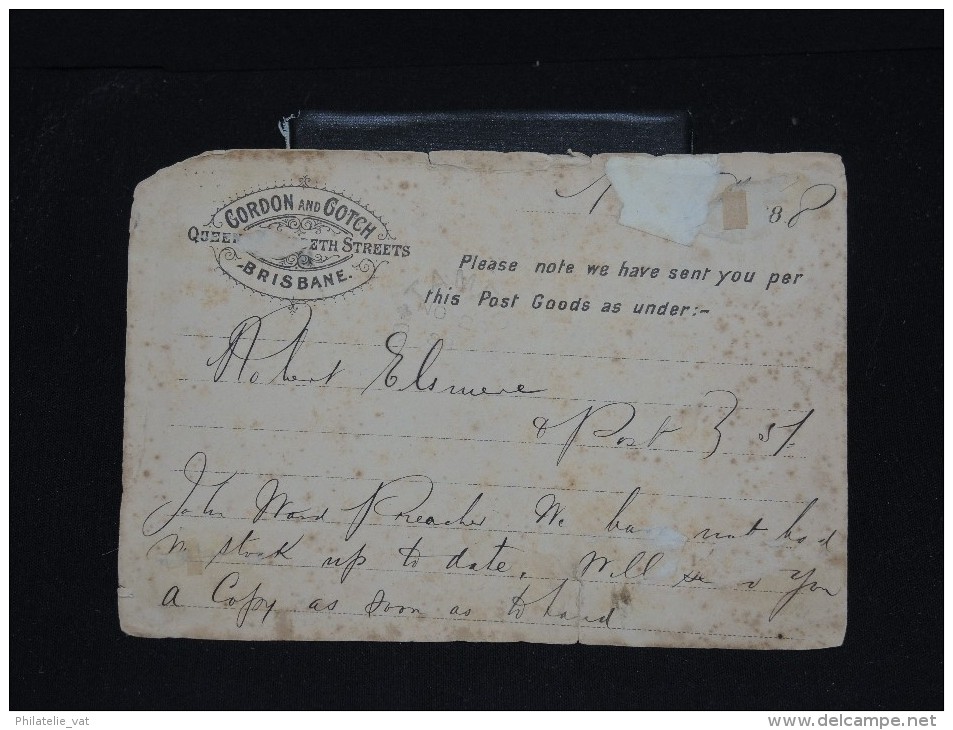 GORDON AND GOTCH
QUEE ETH STREETS
BRISBANE.
88
Please note we have sent you per
this Post Goods as under:-
Robert Elsmere
& Post 3
John Ward Preacher We have not had
in stock up to date. Will you
a Copy as soon as to hand
Philatelie_vat
www.delcampe.net